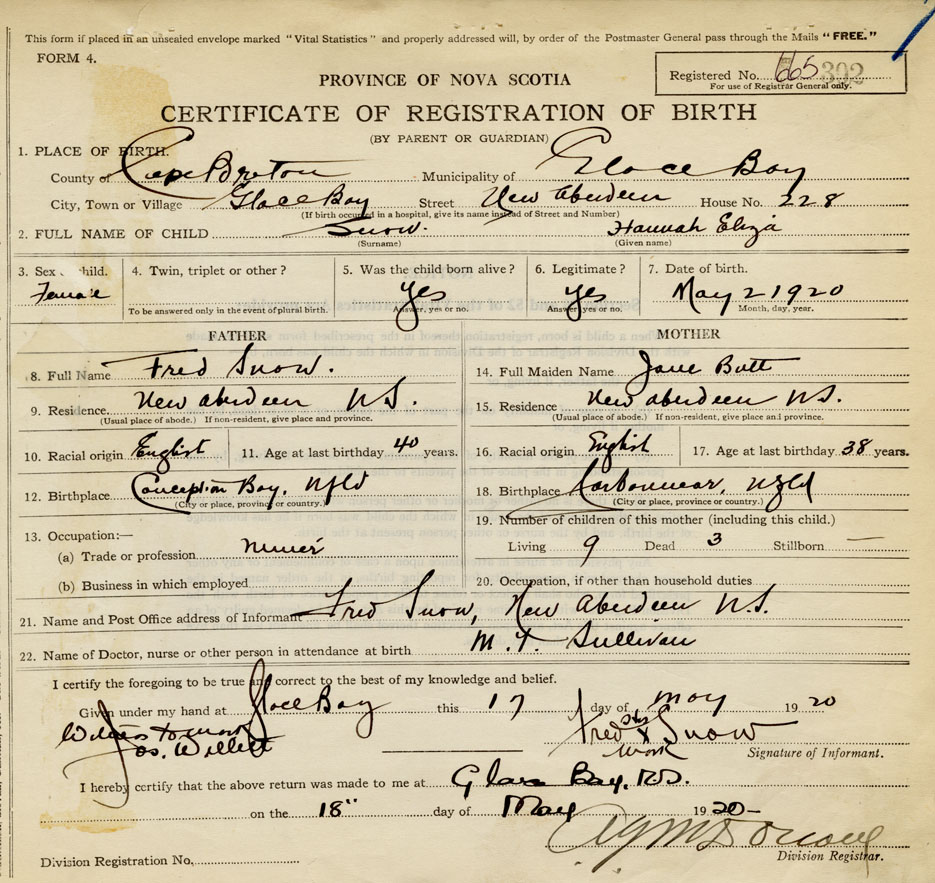 This form if placed in an unsealed envelope marked "Vital Statistics" and properly addressed will, by order of the Postmaster General pass through the Mails "FREE."
FORM 4.
Registered No. 665 302
For use of Registrar General only.
PROVINCE OF NOVA SCOTIA
CERTIFICATE OF REGISTRATION OF BIRTH
(BY PARENT OR GUARDIAN)
1. PLACE OF BIRTH.
County of Cape Breton Municipality of Glace Bay
City, Town or Village Glace Bay Street New Aberdeen House No. 228
(If birth occured in a hospital, give its name instead of Street and Number)
2. FULL NAME OF CHILD Snow. Hannah Eliza
(Surname) (Given name)
3. Sex child. 4. Twin, triplet or other? 5. Was the child born alive? 6. Legitimate? 7. Date of birth.
Female yes yes May 2 1920
To be answered only in the event of plural birth. Answer, yes or no. Answer, yes or no. Month, day, year.
FATHER MOTHER
8. Full Name Fred Snow. 14. Full Maiden Name Jane Butt
9. Residence. New Aberdeen N.S. 15. Residence New Aberdeen N.S.
(Usual place of abode.) If non-resident, give place and province. (Usual place of abode.) If non-resident, give place and province.
10. Racial origin English 11. Age at last birthday 40 years. 16. Racial origin English 17. Age at last birthday 38 years.
12. Birthplace Conception Bay, Nfld 18. Birthplace Carbonnear, Nfld
(City or place, province or country.) (City or place, province or country.)
19. Number of children of this mother (including this child.)
13. Occupation:—
(a) Trade or profession miner Living 9 Dead 3 Stillborn —
(b) Business in which employed 20. Occupation, if other than household duties
21. Name and Post Office address of Informant Fred Snow, New Aberdeen N.S.
22. Name of Doctor, nurse or other person in attendance at birth M. T. Sullivan
I certify the foregoing to be true and correct to the best of my knowledge and belief.
Given under my hand at Glace Bay this 17 day of May 1920
Witness to mark Fred his X Snow
Jos. Willett mark Signature of Informant.
I hereby certify that the above return was made to me at Glace Bay, N.S.
on the 18" day of May 1920—
Division Registration No. Division Registrar.